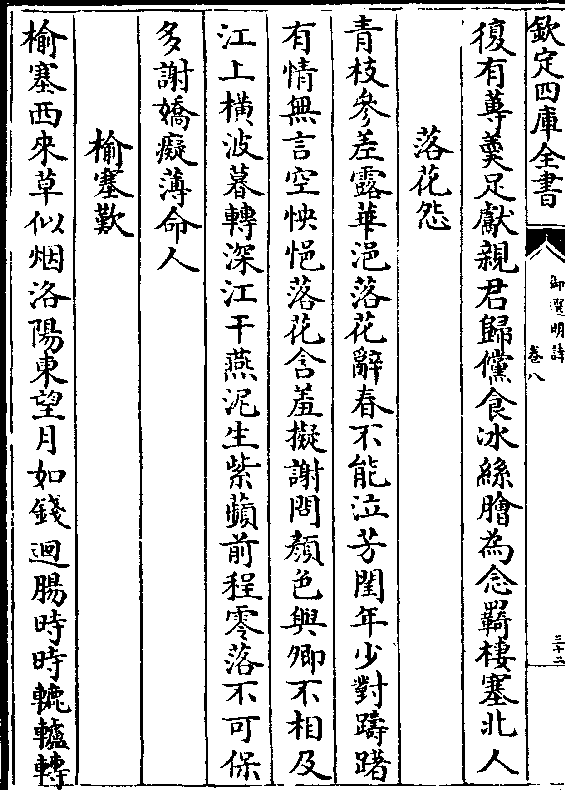 欽定四庫全書
御選明詩
卷八
三十二
復有蓴羹足獻親君歸儻食冰絲膾為念羇棲塞北人
落花怨
青枝參差露華浥落花辭春不能泣芳閨年少對躊躇
有情無言空怏悒落花含羞擬謝問顏色與卿不相及
江上橫波暮轉深江干燕泥生紫蘋前程零落不可保
多謝嬌癡薄命人
榆塞歎
榆塞西來草似烟洛陽東望月如錢迴腸時時轆轤轉